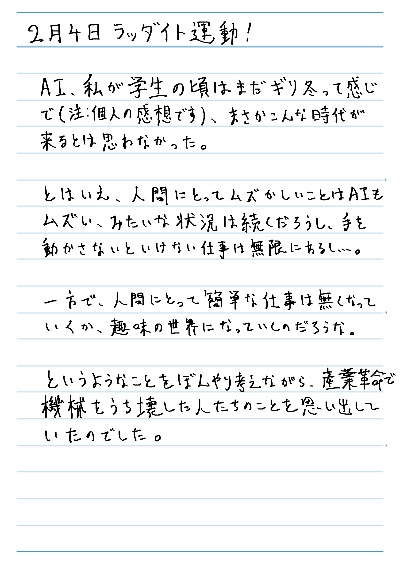 2月4日 ラッダイト運動!
AI、私が学生の頃はまだギリ冬って感じ
で(注:個人の感想です)、まさかこんな時代が
来るとは思わなかった。
とはいえ、人間にとってムズかしいことはAIも
ムズい、みたいな状況は続くだろうし、手を
動かさないといけない仕事は無限にあるし…。
一方で、人間にとって簡単な仕事は無くなって
いくか、趣味の世界になっていくのだろうな。
というようなことをぼんやり考えながら、産業革命で
機械をうち壊した人たちのことを思い出して
いたのでした。